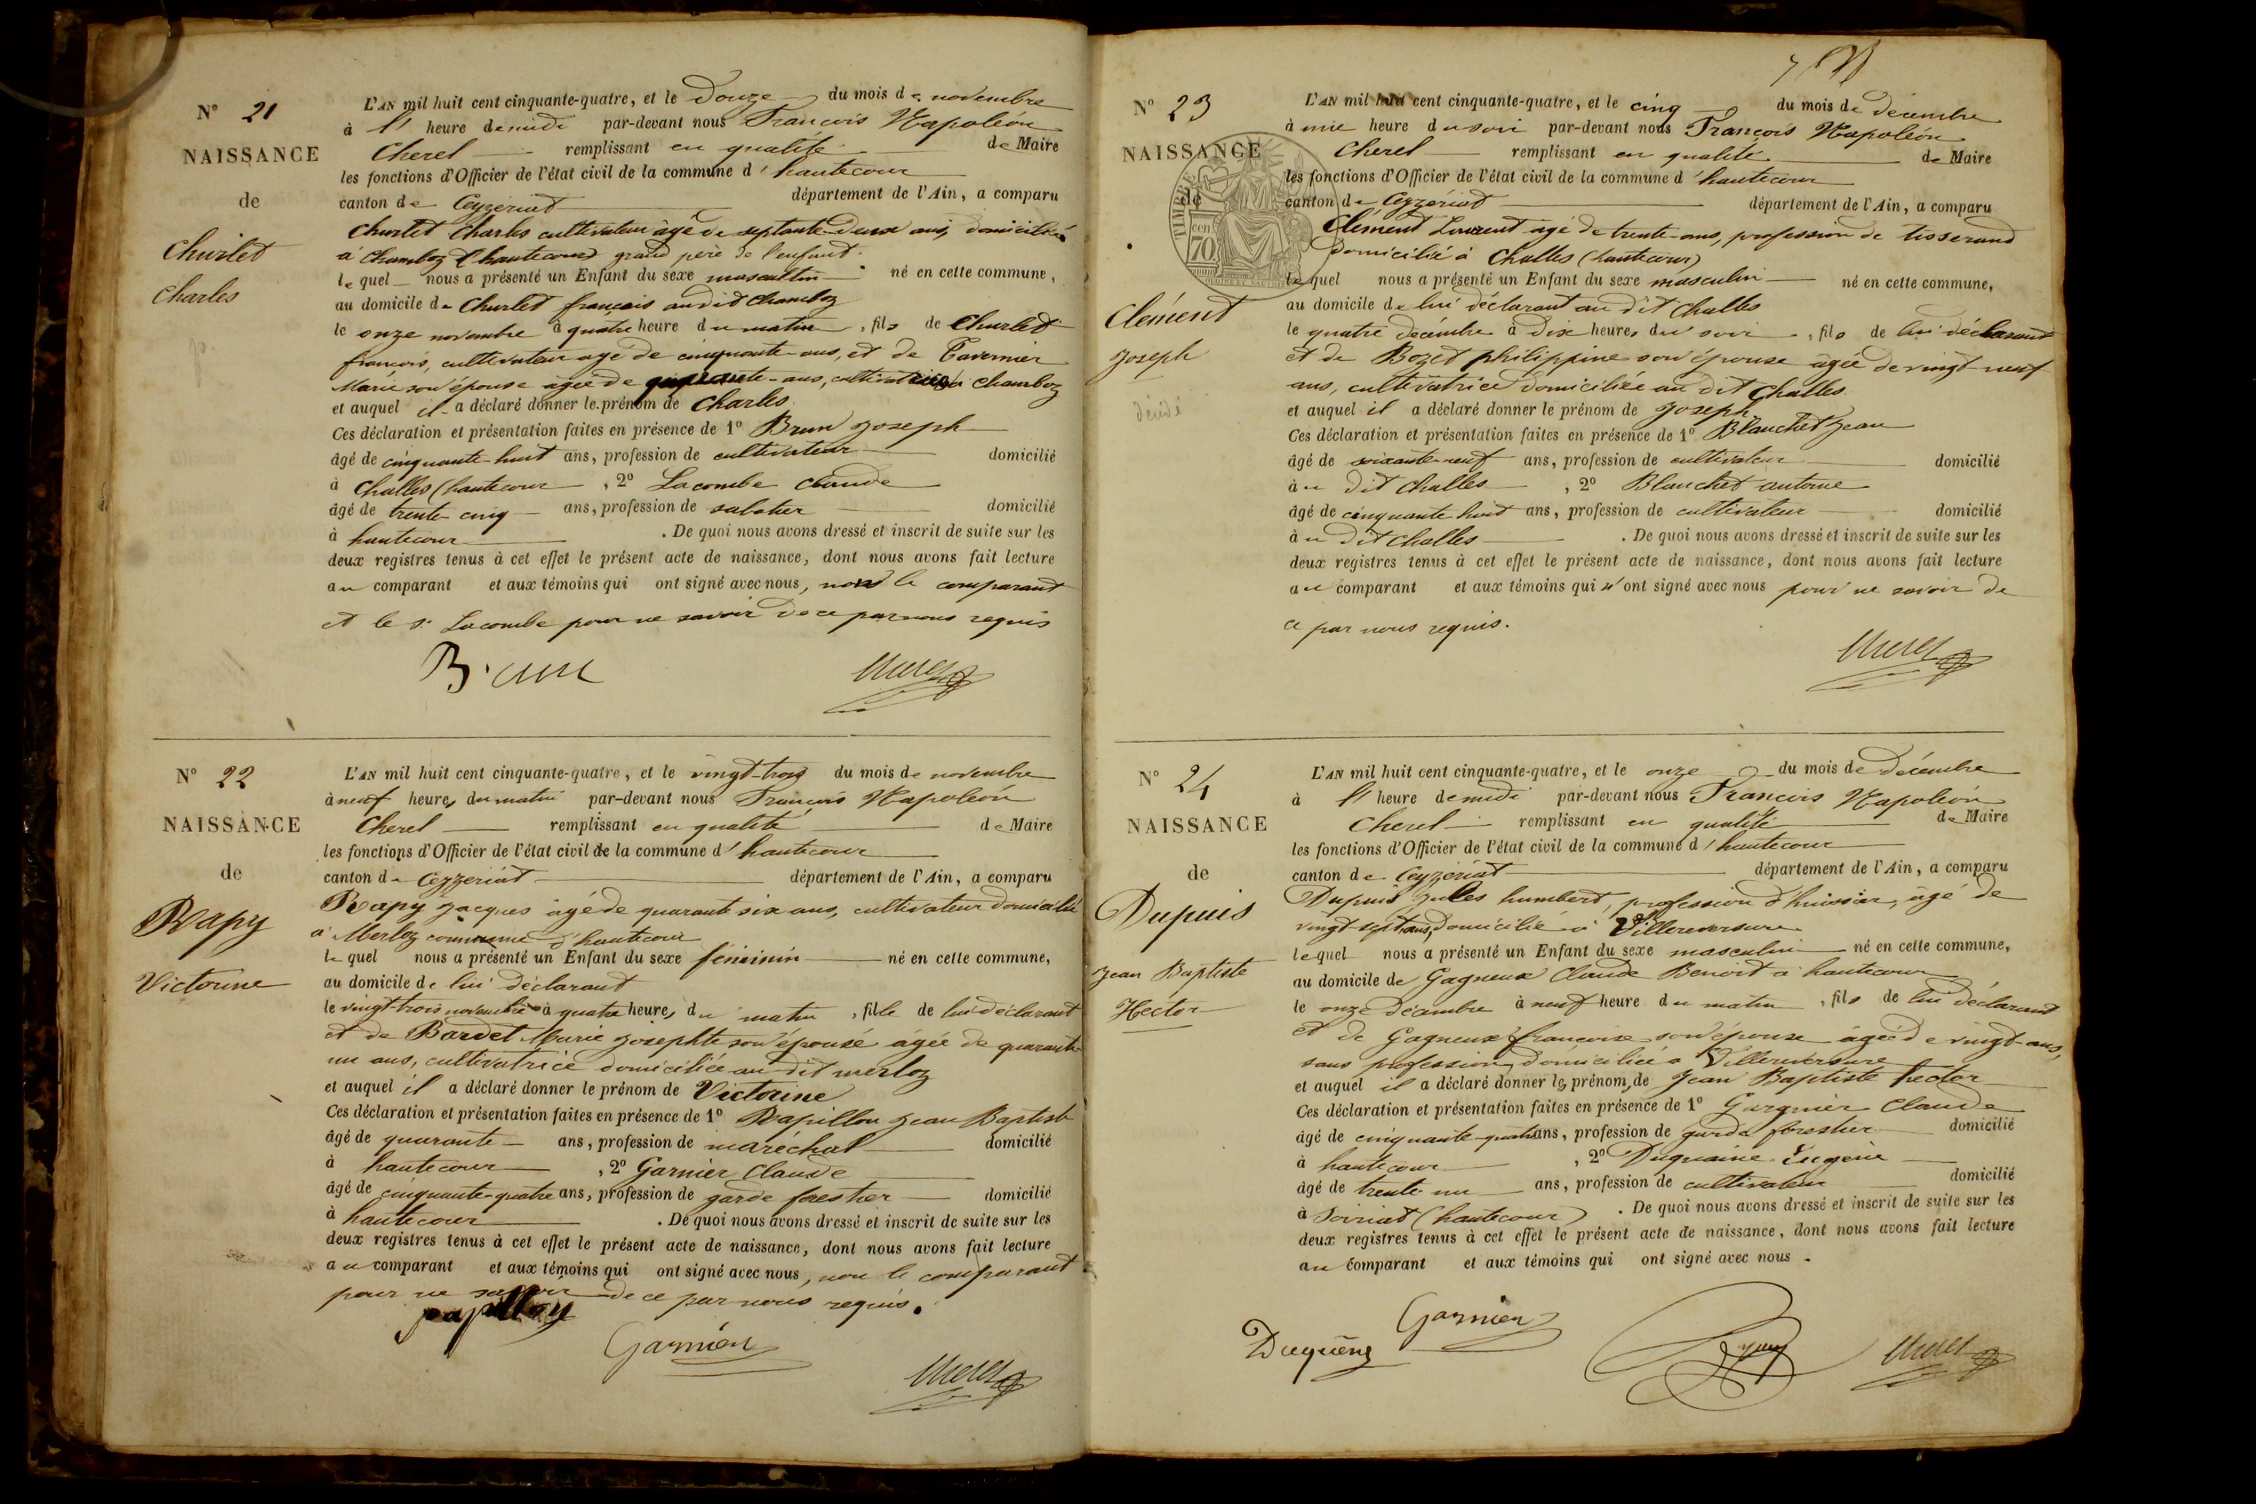 N° 21
NAISSANCE
de
Churlet
Charles
L'AN mil huit cent cinquante-quatre, et le Douze du mois de novembre
à l' heure de midi par-devant nous François Napoléon
Cherel remplissant en qualité de Maire
les fonctions d'Officier de l'état civil de la commune d'hautecour
canton de Ceyzeriat département de l'Ain, a comparu
Churlet Charles cultivateur âgé de septante-deux ans, domicilié
à Chamboz (hautecour) grand père de l'enfant.
le quel nous a présenté un Enfant du sexe masculin né en cette commune,
au domicile de Churlet françois audit Chamboz
le onze novembre à quatre heure du matin, fils de Churlet
françois, cultivateur agé de cinquante-ans, et de Tavernier
Marie son épouse agée de quarante-ans, cultivatrice à Chamboz
et auquel il a déclaré donner le prénom de Charles
Ces déclaration et présentation faites en présence de 1° Brun Joseph
âgé de cinquante-huit ans, profession de cultivateur domicilié
à Challes (hautecour, 2° Lacombe Claude
âgé de trente-cinq ans, profession de sabotier domicilié
à hautecour. De quoi nous avons dressé et inscrit de suite sur les
deux registres tenus à cet effet le présent acte de naissance, dont nous avons fait lecture
au comparant et aux témoins qui ont signé avec nous, non le comparant
et le s. Lacombe pour ne savoir de ce par nous requis
Brun Cherel
N° 22
NAISSANCE
de
Rapy
Victorine
L'AN mil huit cent cinquante-quatre, et le vingt-trois du mois de novembre
à neuf heures du matin par-devant nous François Napoléon
Cherel remplissant en qualité de Maire
les fonctions d'Officier de l'état civil de la commune d'hautecour
canton de Ceyzeriat département de l'Ain, a comparu
Rapy Jacques âgé de quarante six ans, cultivateur domicilié
à Merloz commune d'hautecour
le quel nous a présenté un Enfant du sexe féminin né en cette commune,
au domicile de lui déclarant
le vingt trois novembre à quatre heures du matin, fille de lui déclarant
et de Bardet Marie Josephte son épouse âgée de quarante
un ans, cultivatrice domiciliée au dit merloz
et auquel il a déclaré donner le prénom de Victorine
Ces déclaration et présentation faites en présence de 1° Papillon Jean Baptiste
âgé de quarante ans, profession de maréchal domicilié
à hautecour, 2° Garnier Claude
âgé de cinquante-quatre ans, profession de garde forestier domicilié
à hautecour. De quoi nous avons dressé et inscrit de suite sur les
deux registres tenus à cet effet le présent acte de naissance, dont nous avons fait lecture
au comparant et aux témoins qui ont signé avec nous, non le comparant
pour ne savoir de ce par nous requis.
papillon
Garnier
Cherel
N° 23
NAISSANCE
de
Clément
Joseph
décédé
TIMBRE
70
L'AN mil huit cent cinquante-quatre, et le cinq du mois de décembre
à une heure du soir par-devant nous François Napoléon
Cherel remplissant en qualité de Maire
les fonctions d'Officier de l'état civil de la commune d'hautecour
canton de Ceyzériat département de l'Ain, a comparu
Clément Laurent agé de trente-ans, profession de tisserand
domicilié à Challes (hautecour)
le quel nous a présenté un Enfant du sexe masculin né en cette commune,
au domicile de lui déclarant au dit Challes
le quatre décembre à dix heures du soir, fils de lui déclarant
et de Bozet philippine son épouse agée de vingt-neuf
ans, cultivatrice domiciliée au dit Challes
et auquel il a déclaré donner le prénom de Joseph
Ces déclaration et présentation faites en présence de 1° Blanchet Jean
âgé de soixante-neuf ans, profession de cultivateur domicilié
au dit Challes, 2° Blanchet antoine
âgé de cinquante huit ans, profession de cultivateur domicilié
au dit challes. De quoi nous avons dressé et inscrit de suite sur les
deux registres tenus à cet effet le présent acte de naissance, dont nous avons fait lecture
au comparant et aux témoins qui n'ont signé avec nous pour ne savoir de
ce par nous requis.
Cherel
N° 24
NAISSANCE
de
Dupuis
Jean Baptiste
Hector
L'AN mil huit cent cinquante-quatre, et le onze du mois de décembre
à l' heure de midi par-devant nous François Napoléon
Cherel remplissant en qualité de Maire
les fonctions d'Officier de l'état civil de la commune d'hautecour
canton de Ceyzériat département de l'Ain, a comparu
Dupuis Jules humbert, profession d'huissier, âgé de
vingt-sept ans, domicilié à Villereversure
lequel nous a présenté un Enfant du sexe masculin né en cette commune,
au domicile de Gagneux Claude Benoit à hautecour
le onze décembre à neuf heure du matin, fils de lui déclarant
et de Gagneux françoise son épouse âgée de vingt-ans,
sans profession, domiciliée à Villereversure
et auquel il a déclaré donner les prénom de Jean Baptiste hector
Ces déclaration et présentation faites en présence de 1° Gargnier Claude
âgé de cinquante-quatre ans, profession de garde forestier domicilié
à hautecour, 2° Duquaine Eugène
âgé de trente un ans, profession de cultivateur domicilié
à Soiriat (hautecour). De quoi nous avons dressé et inscrit de suite sur les
deux registres tenus à cet effet le présent acte de naissance, dont nous avons fait lecture
au comparant et aux témoins qui ont signé avec nous.
Garnier
Duquêne Cherel